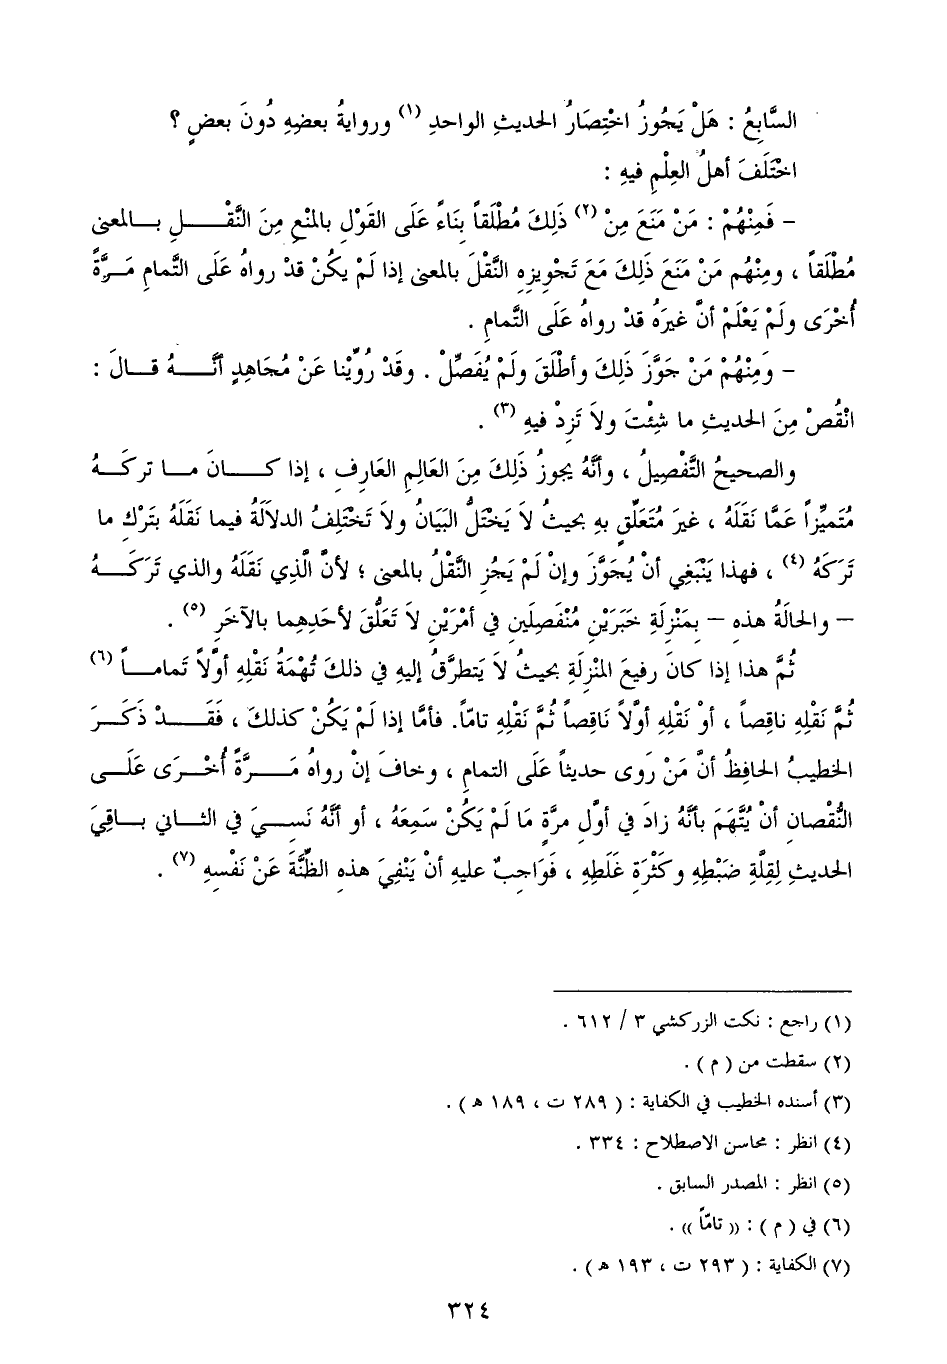 السَّابِعُ : هَلْ يَجُوزُ اخْتِصَارُ الحديثِ الواحدِ (١) وروايةُ بعضِهِ دُونَ بعضٍ ؟
اخْتَلَفَ أهلُ العِلْمِ فيهِ :
– فَمِنْهُمْ : مَنْ مَنَعَ مِنْ (٢) ذَلِكَ مُطْلَقاً بنَاءً عَلَى القَوْلِ بالمنْعِ مِنَ النَّقْلِ بالمعنى
مُطْلَقاً ، ومِنْهُم مَنْ مَنَعَ ذَلِكَ مَعَ تَجْوِيزِهِ النَّقْلَ بالمعنى إذا لَمْ يكُنْ قدْ رواهُ عَلَى التَّمامِ مَرَّةً
أُخْرَى ولَمْ يَعْلَمْ أنَّ غيرَهُ قدْ رواهُ عَلَى التَّمامِ .
– وَمِنْهُمْ مَنْ جَوَّزَ ذَلِكَ وأطْلَقَ ولَمْ يُفَصِّلْ . وقَدْ رُوِّيْنا عَنْ مُجَاهِدٍ أنَّهُ قالَ :
انْقُصْ مِنَ الحديثِ ما شِئْتَ ولاَ تَزِدْ فيهِ (٣) .
والصحيحُ التَّفْصِيلُ ، وأنَّهُ يجوزُ ذَلِكَ مِنَ العَالِمِ العَارِفِ ، إذا كَانَ مَا تركَهُ
مُتَمِيِّزاً عمَّا نَقَلَهُ ، غيرَ مُتَعَلِّقٍ بهِ بحيثُ لاَ يَخْتَلُّ البَيَانُ ولاَ تَخْتَلِفُ الدلالَةُ فيما نَقَلَهُ بتَرْكِ ما
تَرَكَهُ (٤) ، فهذا يَنْبَغِي أنْ يُجَوَّزَ وإنْ لَمْ يَجُزِ النَّقْلُ بالمعنى ؛ لأنَّ الَّذِي نَقَلَهُ والذي تَرَكَهُ
– والحالَةُ هذهِ – بِمَنْزِلَةِ خَبَرَيْنِ مُنْفَصِلَينِ في أمْرَيْنِ لاَ تَعَلُّقَ لأحَدِهِما بالآخَرِ (٥) .
ثُمَّ هذا إذا كانَ رفيعَ المنْزِلَةِ بحيثُ لاَ يَتطرَّقُ إليهِ في ذلكَ تُهْمَةُ نَقْلِهِ أوَّلاً تَماماً (٦)
ثُمَّ نَقْلِهِ ناقِصاً ، أو نَقْلِهِ أوَّلاً نَاقِصاً ثُمَّ نَقْلِهِ تامّاً. فأمَّا إذا لَمْ يَكُنْ كذلكَ ، فَقَدْ ذَكَرَ
الخطيبُ الحافِظُ أنَّ مَنْ رَوى حديثاً عَلَى التمامِ ، وخافَ إنْ رواهُ مَرَّةً أُخْرَى عَلَى
النُّقْصانِ أنْ يُتَّهَمَ بأنَّهُ زادَ في أوَّلِ مرَّةٍ مَا لَمْ يَكُنْ سَمِعَهُ ، أو أنَّهُ نَسِيَ في الثاني باقِيَ
الحديثِ لِقِلَّةِ ضَبْطِهِ وكَثْرَةِ غَلَطِهِ ، فَوَاجِبٌ عليهِ أنْ يَنْفِيَ هذهِ الظِّنَّةَ عَنْ نَفْسِهِ (٧) .
(١) راجع : نكت الزركشي ٣ / ٦١٢ .
(٢) سقطت من ( م ) .
(٣) أسنده الخطيب في الكفاية : ( ٢٨٩ ت ، ١٨٩ ه ) .
(٤) انظر : محاسن الاصطلاح : ٣٣٤ .
(٥) انظر : المصدر السابق .
(٦) في ( م ) : (( تامّاً )) .
(٧) الكفاية : ( ٢٩٣ ت ، ١٩٣ ه ) .
٣٢٤